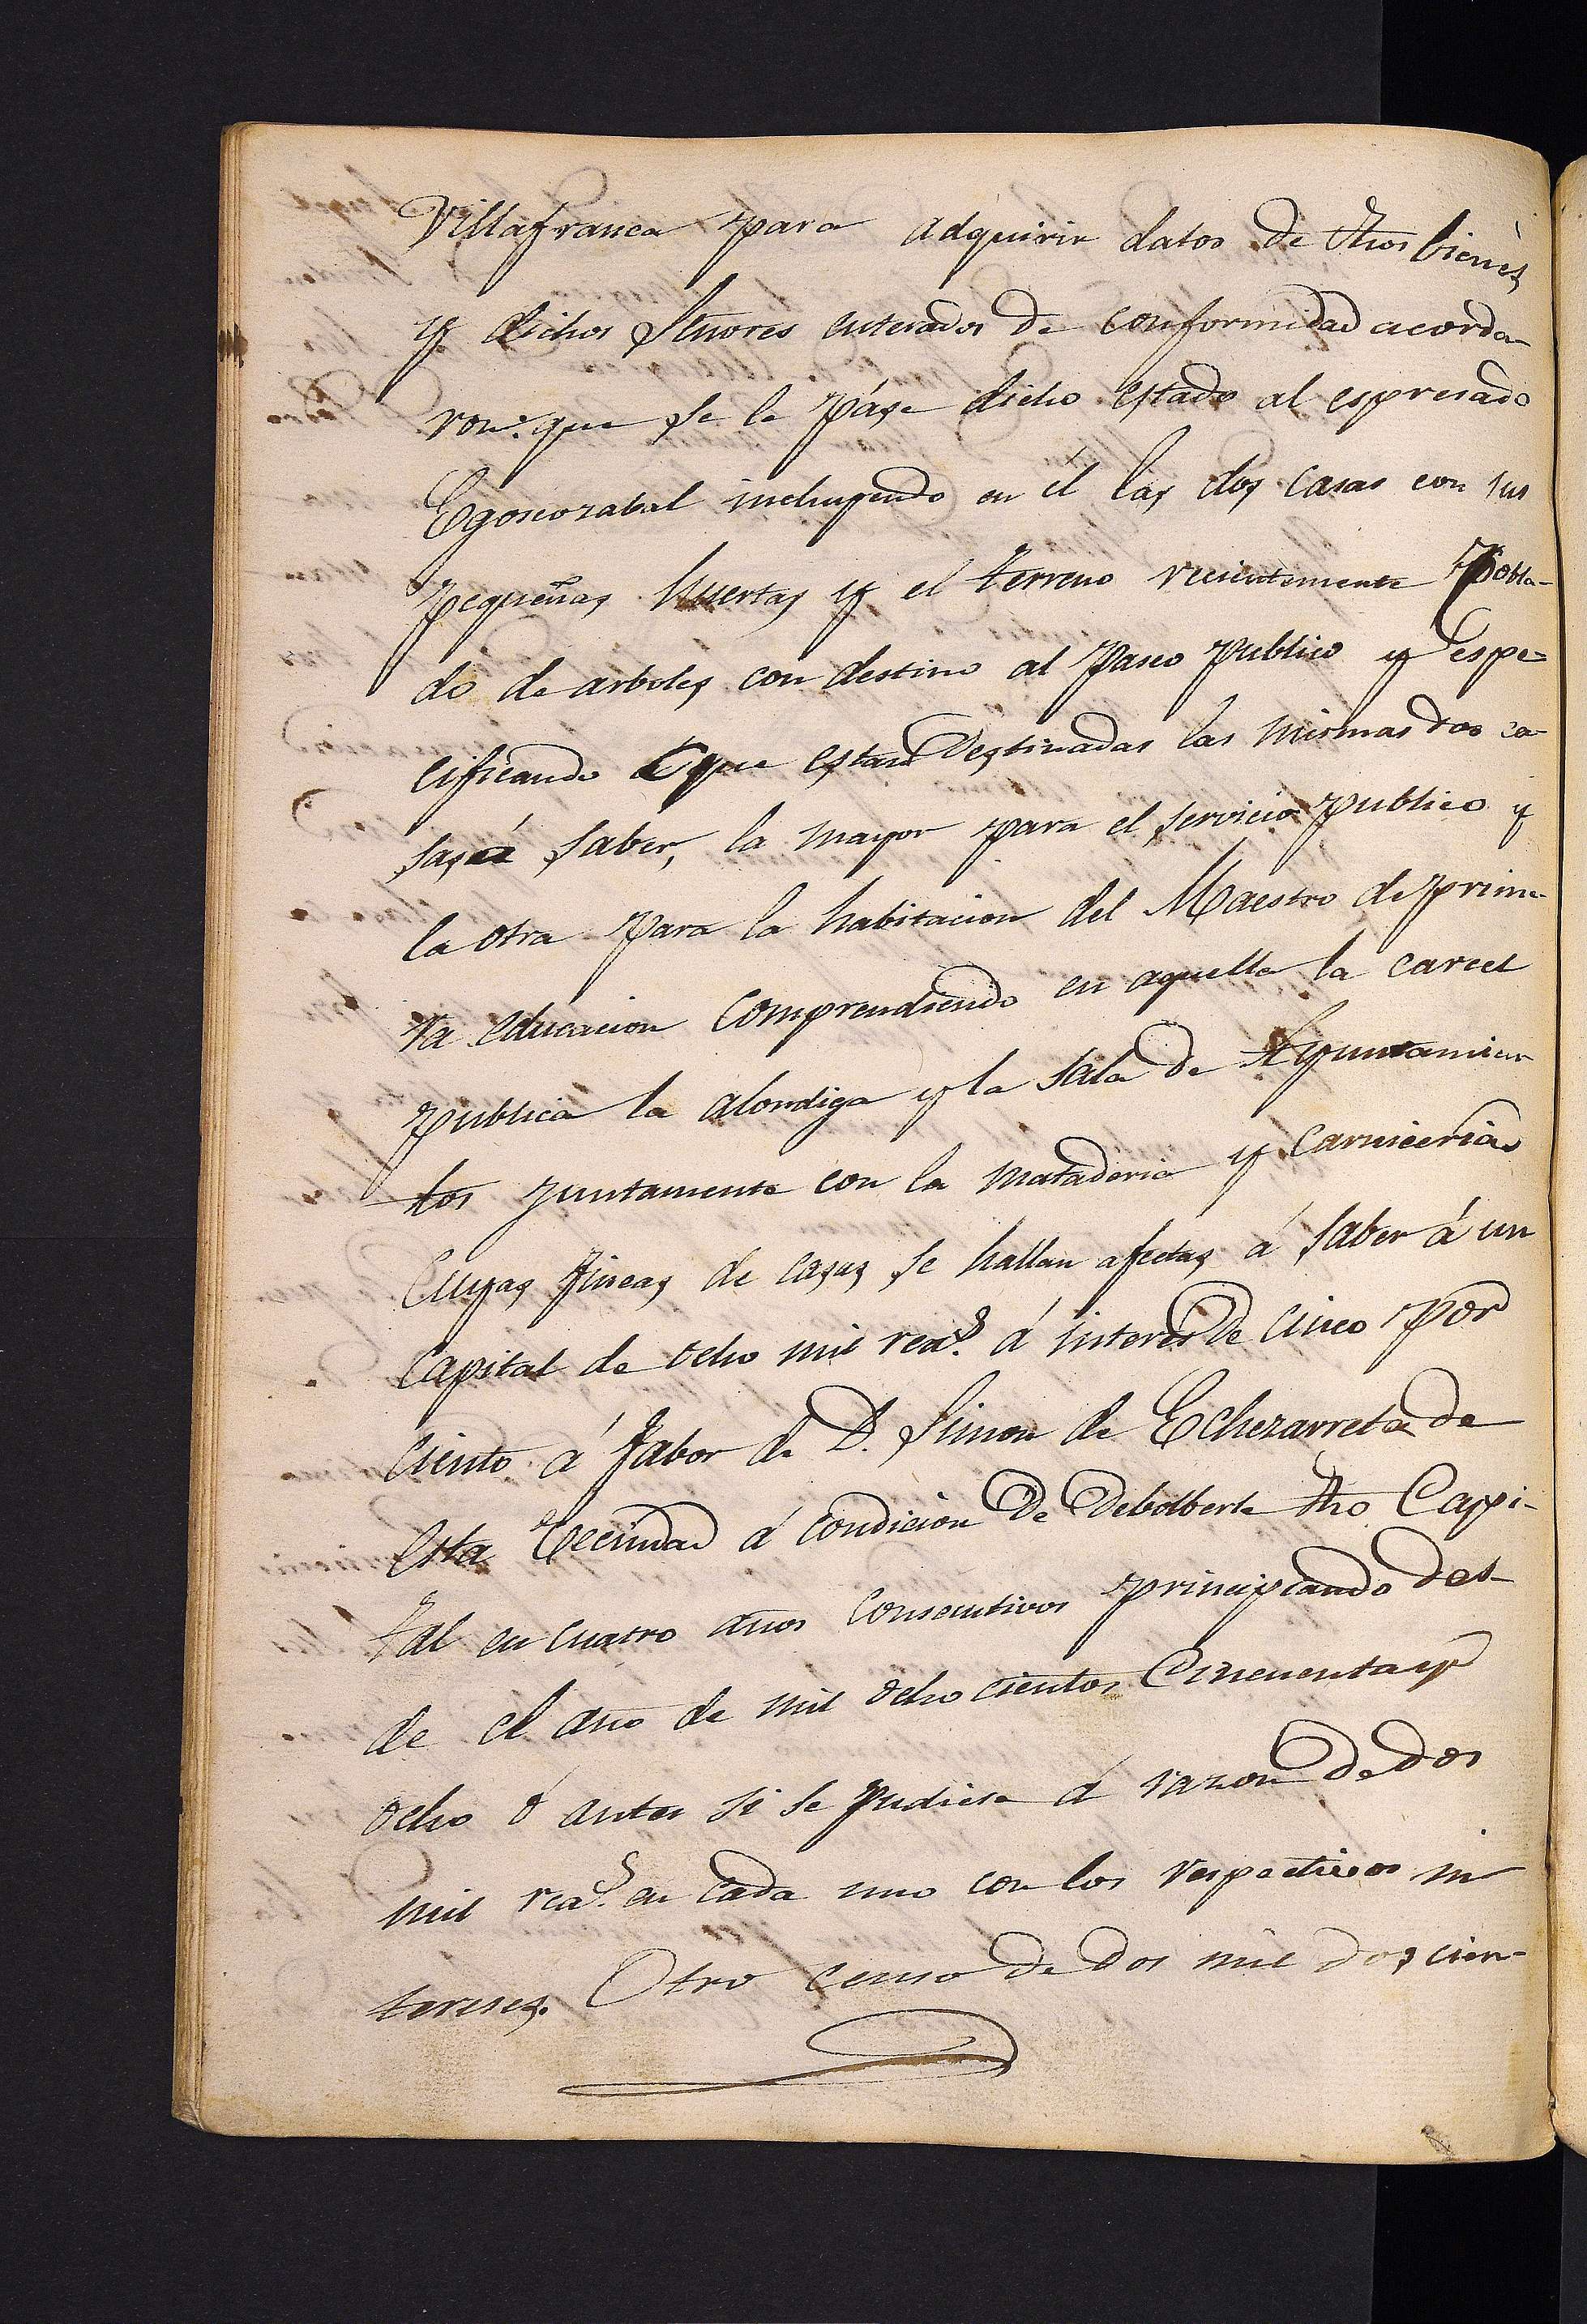 Villafranca para adquirir datos de dhos bienes
y dichos Señores enterados de conformidad acorda-
ron: que se le páse dicho estado al espresado
Egoscozabal incluyendo en él las dos casas con sus
pequeñas huertas y el terreno recientemente pobla-
do de arboles con destino al paseo publico y espe-
cificando á que estan destinadas las mismas dos ca-
sas á saber, la mayor para el servicio publico y
la otra para la habitacion del Maestro de prime-
ra educacion comprendiendo en aquella la carcel
publica la alondiga y la sala de Ayuntamien
tos juntamente con la mataderia y Carniceria
Cuyas fincas de casas se hallan afectas á saber á un
Capital de ocho mil rea.s á interes de cinco por
ciento á fabor de D. Simon de Echezarreta de
esta Vecindad á condicion de debolberle dho Capi-
tal en cuatro años consecutivos principiando des-
de el año de mil ocho cientos Cincuenta y
ocho ó antes si se pudiese á razon de dos
mil rea.s en cada uno con los respectivos in
tereses. Otro censo de dos mil doscien-